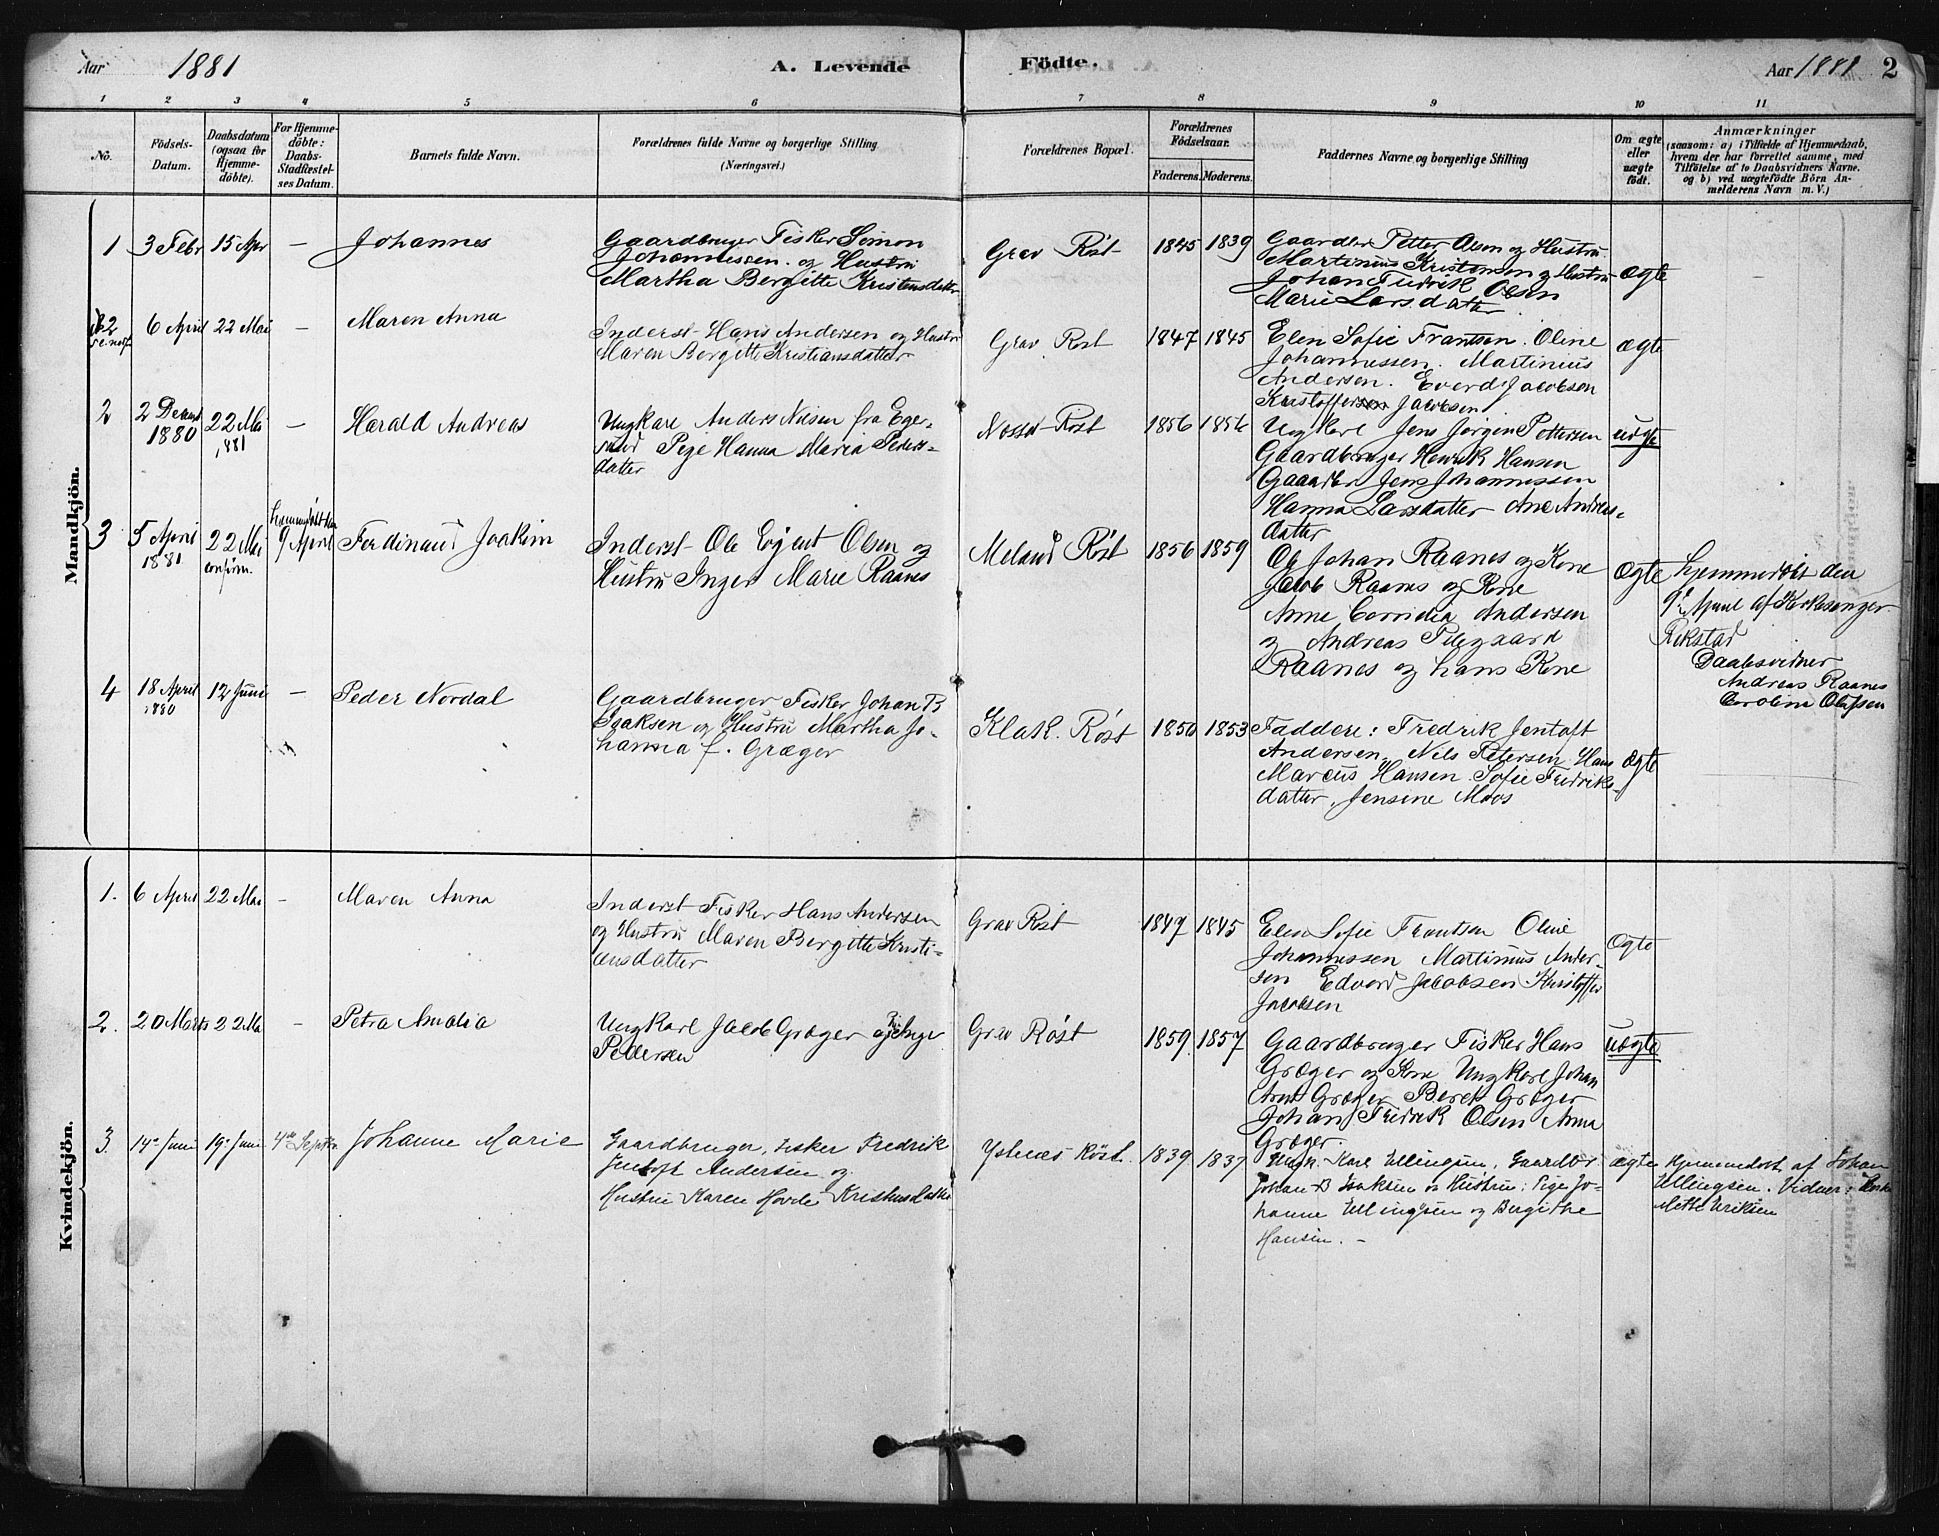 Aar 1881
A. Levende Födte.
Aar 1881 2
1 2 3 4 5 6 7 8 9 10 11
No.
Födsels-
Datum.
Daabsdatum
(ogsaa for
Hjemme-
döbte).
For Hjemme-
döbte:
Daabs-
Stadfæstel-
ses Datum.
Barnets fulde Navn.
Forældrenes fulde Navne og borgerlige Stilling
(Næringsvei.)
Forældrenes Bopæl.
Forældrenes
Födselsaar.
Faderens. Moderens.
Faddernes Navne og borgerlige Stilling
Om ægte
eller
uægte
födt.
Anmærkninger
(saasom: a) i Tilfælde af Hjemmedaab,
hvem der har forrettet samme, med
Tilföielse af to Daabsvidners Navne.
og b) ved uægtefödte Börn An-
melderens Navn m. V.)
Mandkjön.
1 3 Febr 15 Apr — Johannes
Gaardbruger Fisker Simon
Johannessen og Hustru
Martha Bergitte Kristensdatter
Grav Röst 1845 1839
Gaardbr Petter Olsen og Hustru
Martinus Kristensen og Hustru
Johan Fredrik Olsen
Marie Larsdatter
ægte
2 6 April 22 Mai — Maren Anna
Inderst Hans Andersen og Hustru
Maren Bergitte Kristiansdatter
Grav Rost 1847 1845
Elen Sofie Frantsen. Oline
Johannessen. Martinius
Andersen. Evard Jacobsen
Kristoffersen Jacobsen
ægte
2 2 Decmb 1880 22 Mai 1881 — Harald Andreas
Ungkare Anders Nilsen fra Eger-
sund Pige Hanna Maria Peders-
datter
Rost 1856 1856
Ungkarl Jens Jørgen Pettersen
Gaardbruger Henrik Hansen
Gaardbr Jens Johannessen
Hanna Larsdatter Ane Andreas-
datter
uægte
3 5 April 1881 22 Mai confirm. hjemmedøbt den 9 April Ferdinand Joakim
Inderst Ole Ejent Olsen og
Hustru Inger Marie Raanes
Meland Röst 1856 1859
Ole Johan Raanes og Kone
Jacob Raanes og Kone
Anne Cornelia Andersen
og Andreas Raanes og hans Kone
Ægte
hjemmedöbt den
9de April af Kirkesanger
Rekstad
Daabsvidner
Andreas Raanes
Caroline Olufsen
4 18 April 1880 12 Juni — Peder Nordal
Gaardbruger Fisker Johan B
Isaksen og Hustru Martha Jo-
hanna f. Græger
Klak. Röst 1850 1853
Faddere: Fredrik Jentoft
Andersen, Nils Petersen Hans
Marcus Hansen Sofie Fredriks-
datter, Jensine Moos
Ægte
Kvindekjön.
1. 6 April 22 Mai - Maren Anna
Inderst Fisker Hans Andersen
og Hustru Maren Bergitte Kristi-
ansdatter
Grav Röst 1847 1845
Elen Sofie Frantsen Oline
Johannessen Martinus Ander-
sen Edvard Jacobsen Kristoffer
Jacobsen
Ægte
2. 20 Marts 22 Mai - Petra Amalia
Ungkarl Jacob Græger og Pige Inger
Pedersen
Grav Röst 1859 1857
Gaardbruger Fisker Hans
Græger og Kone Ungkarl Johan
Arnt Græger Beret Græger
Johan Fredrik Olsen Anna
Græger.
uægte
3. 14de Juni 19de Juni 4de Septbr Johanne Marie
Gaardbruger, Fisker Fredrik
Jentoft Andersen og
Hustru Karen Kristensdatter
Ystnæs Röst. 1839 1837
Ungk. Karl Ellingsen, Gaardbr.
Johan B Isaksen og Hustru; Pige Jo-
hanne Ellingsen og Bergithe
Hansen. —
ægte
Hjemmedöbt af Johan
Ellingsen. Vidner:
Mette Eriksen